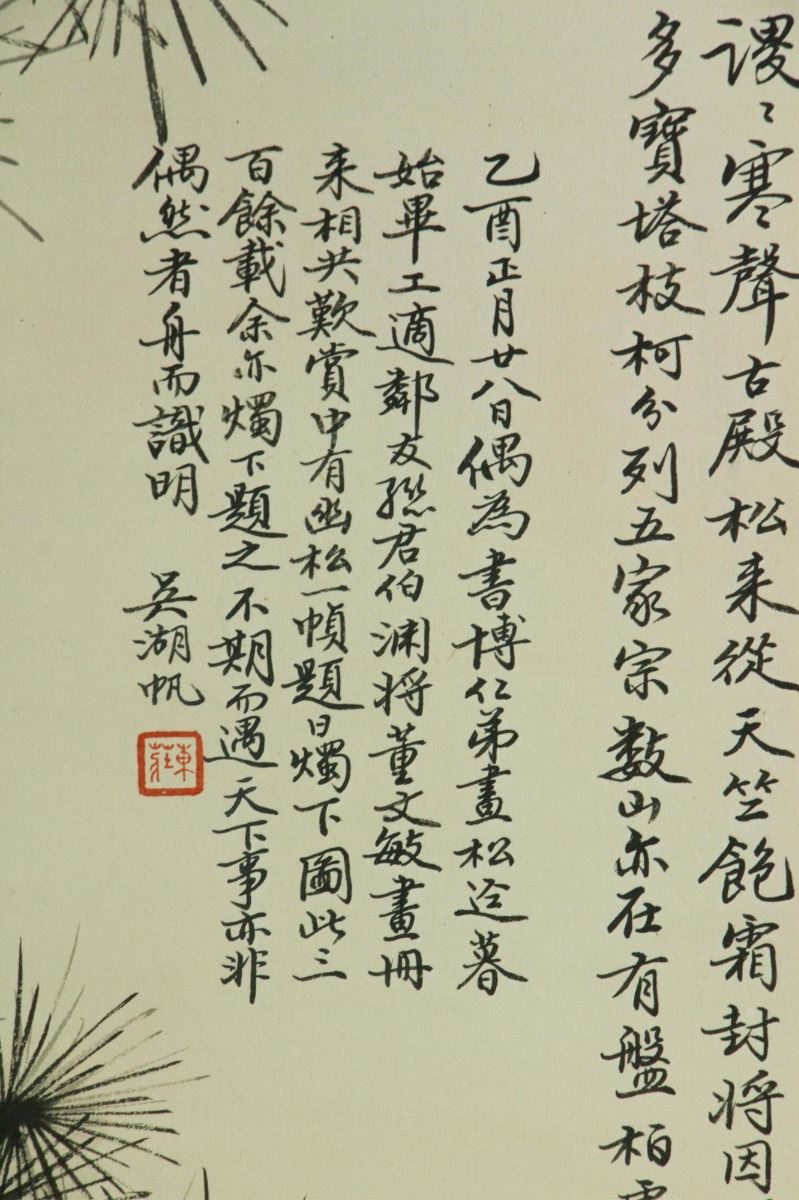 謖〻寒聲古殿松来從天竺飽霜封將因
多寶塔枝柯分列五家宗數山亦在有盤柏
乙酉正月廿八日偶為書博仁弟畫松迨暮
始畢工適鄰友孫君伯渊將董文敏畫冊
来相共歎賞中有幽松一幀題曰燭下圖此三
百餘載余亦燭下題之不期而遇天下事亦非
偶然者舟而識明
吳湖帆
東莊